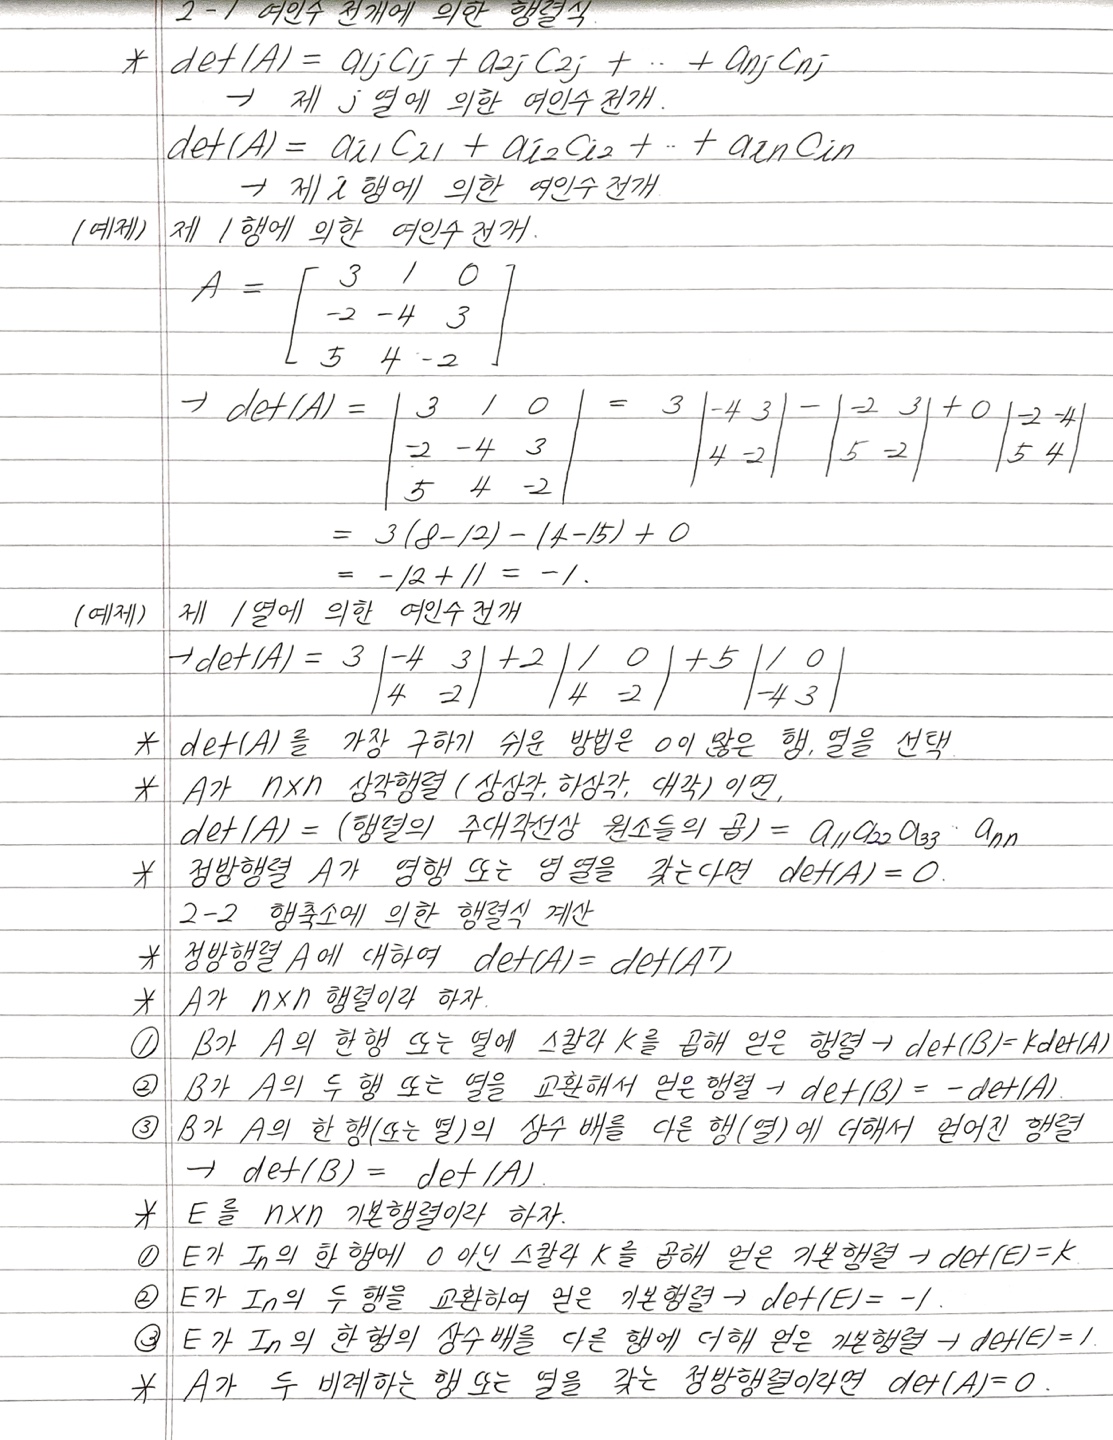 2-1 여인수 전개에 의한 행렬식
* det(A) = a1jC1j + a2jC2j + ‥ + anjCnj
→ 제 j 열에 의한 여인수 전개.
det(A) = ai1Ci1 + ai2Ci2 + ‥ + ainCin
→ 제 i 행에 의한 여인수 전개
(예제) 제 1행에 의한 여인수 전개.
A = [ 3 1 0
-2 -4 3
5 4 -2 ]
→ det(A) = | 3 1 0 | = 3 |-4 3| - |-2 3| + 0 |-2 -4|
|-2 -4 3| |4 -2| |5 -2| |5 4|
|5 4 -2|
= 3(8-12) - (4-15) + 0
= -12+11 = -1.
(예제) 제 1열에 의한 여인수 전개
→ det(A) = 3 |-4 3| +2 |1 0| +5 |1 0|
|4 -2| |4 -2| |-4 3|
* det(A)를 가장 구하기 쉬운 방법은 0이 많은 행, 열을 선택
* A가 n×n 삼각행렬 (상삼각, 하삼각, 대각) 이면,
det(A) = (행렬의 주대각선상 원소들의 곱) = a11a22a33‥ann
* 정방행렬 A가 영행 또는 영열을 갖는다면 det(A) = 0.
2-2 행축소에 의한 행렬식 계산
* 정방행렬 A에 대하여 det(A) = det(Aᵀ)
* A가 n×n 행렬이라 하자.
① B가 A의 한행 또는 열에 스칼라 K를 곱해 얻은 행렬 → det(B)=Kdet(A)
② B가 A의 두 행 또는 열을 교환해서 얻은 행렬 → det(B) = -det(A).
③ B가 A의 한 행(또는 열)의 상수 배를 다른 행(열)에 더해서 얻어진 행렬
→ det(B) = det(A).
* E를 n×n 기본행렬이라 하자.
① E가 In의 한 행에 0 아닌 스칼라 K를 곱해 얻은 기본행렬 → det(E)=K
② E가 In의 두 행을 교환하여 얻은 기본행렬 → det(E) = -1.
③ E가 In의 한 행의 상수배를 다른 행에 더해 얻은 기본행렬 → det(E)=1.
* A가 두 비례하는 행 또는 열을 갖는 정방행렬이라면 det(A)=0.